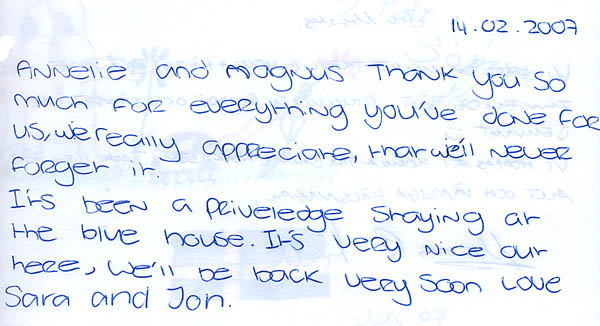 14.02.2007
Annelie and Magnus Thank you so
much for everything you've done for
us, we really appreciate, that we'll never
forget it.
It's been a priveledge staying at
the blue house. It's very nice out
here, we'll be back very soon Love
Sara and Jon.